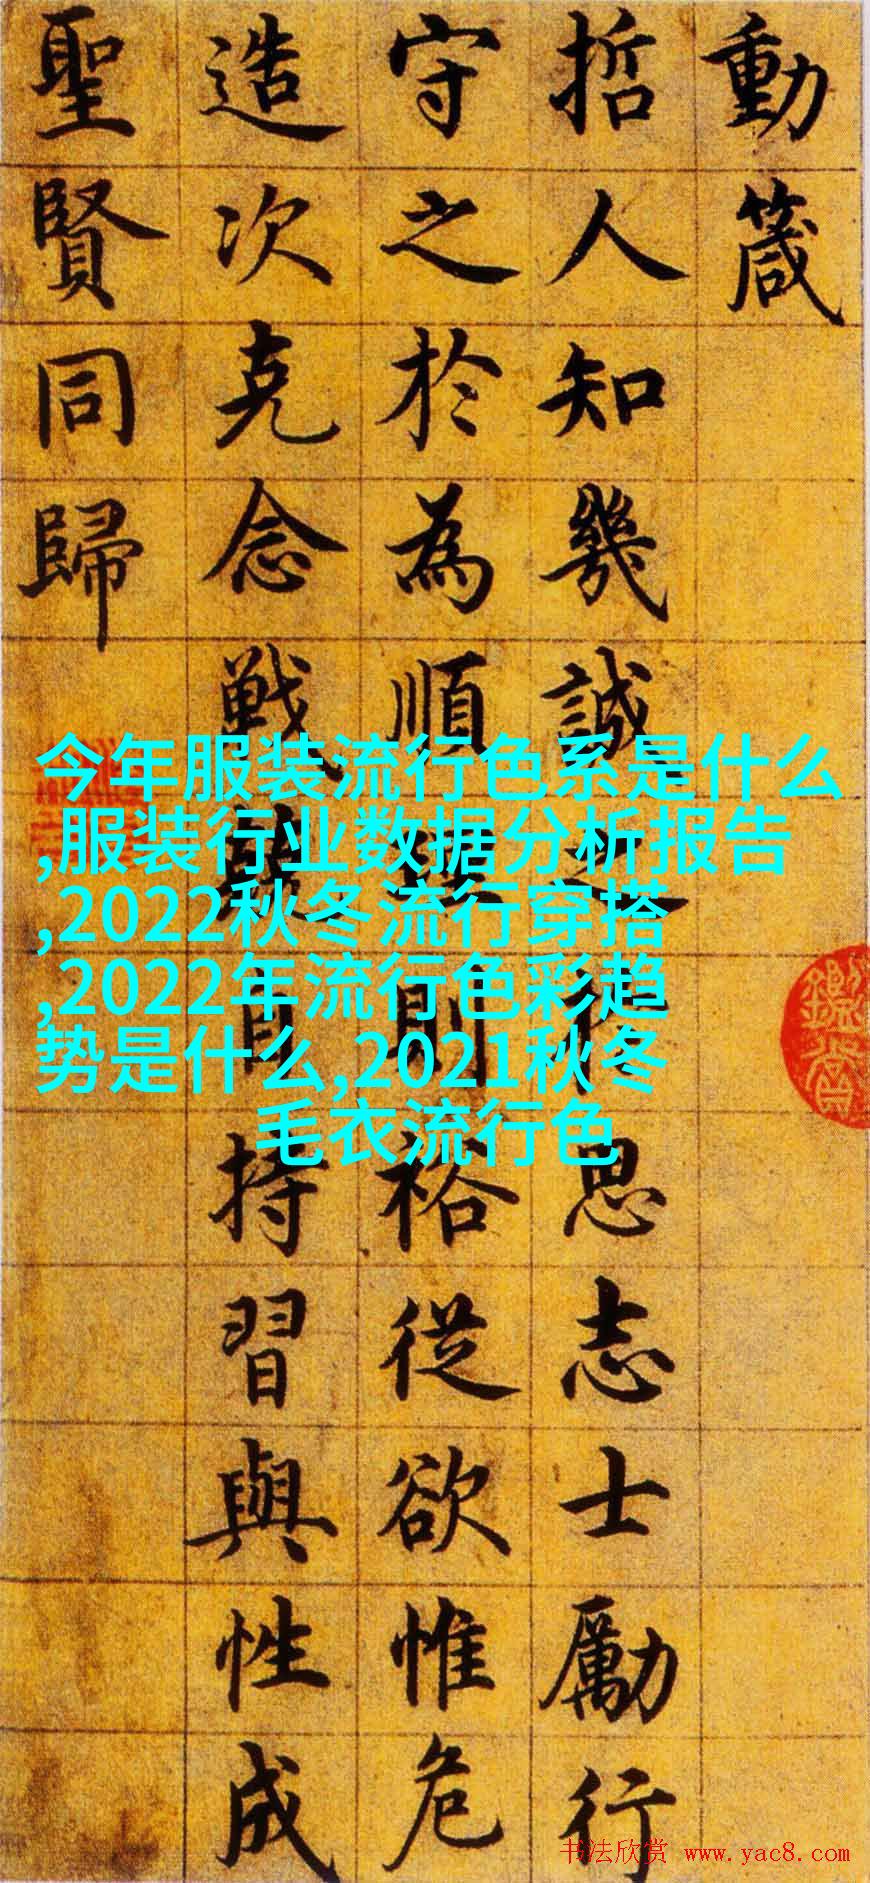 動箴
哲人知幾誠之於思志士勵行
守之於為順理則裕從欲惟危
造次克念戦兢自持習與性成
聖賢同歸
今年服装流行色系是什么
,服装行业数据分析报告
,2022秋冬流行穿搭
,2022年流行色彩趋
势是什么,2021秋冬
毛衣流行色
书法欣赏 www.yac8.com